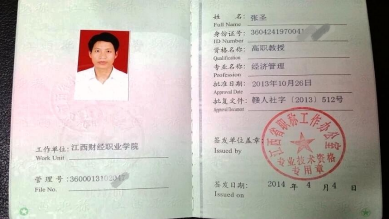 工作单位:江西财经职业学院
Work Unit
管理号:3600013100
File No.
姓名:张圣
Full Name
身份证号:36042419700041
ID Number
资格名称:高职教授
Qualification
专业名称:经济管理
Profession
批准日期:2013年10月26日
Approval Date
批复文号:赣人社字〔2013〕512号
Approval Document
签发单位盖章:
Issued by
江西省职称工作办公室
专业技术资格
专用章
签发日期:2014年4月4日
Issued on